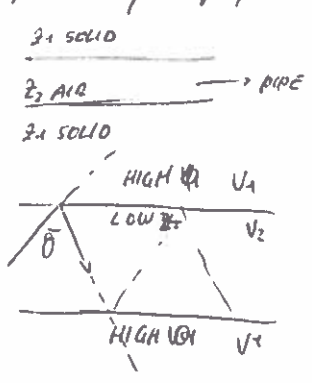 Z1 SOLID
Z2 AIR → PIPE
Z1 SOLID
HIGH V1
LOW V2
θ
HIGH V1